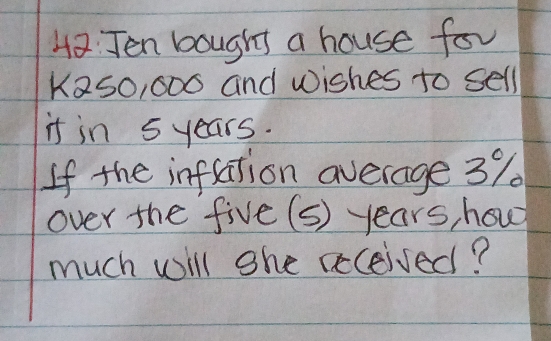 42. Jen bought a house for
K250,000 and wishes to sell
it in 5 years.
If the inflation average 3%
over the five (5) years, how
much will she received?